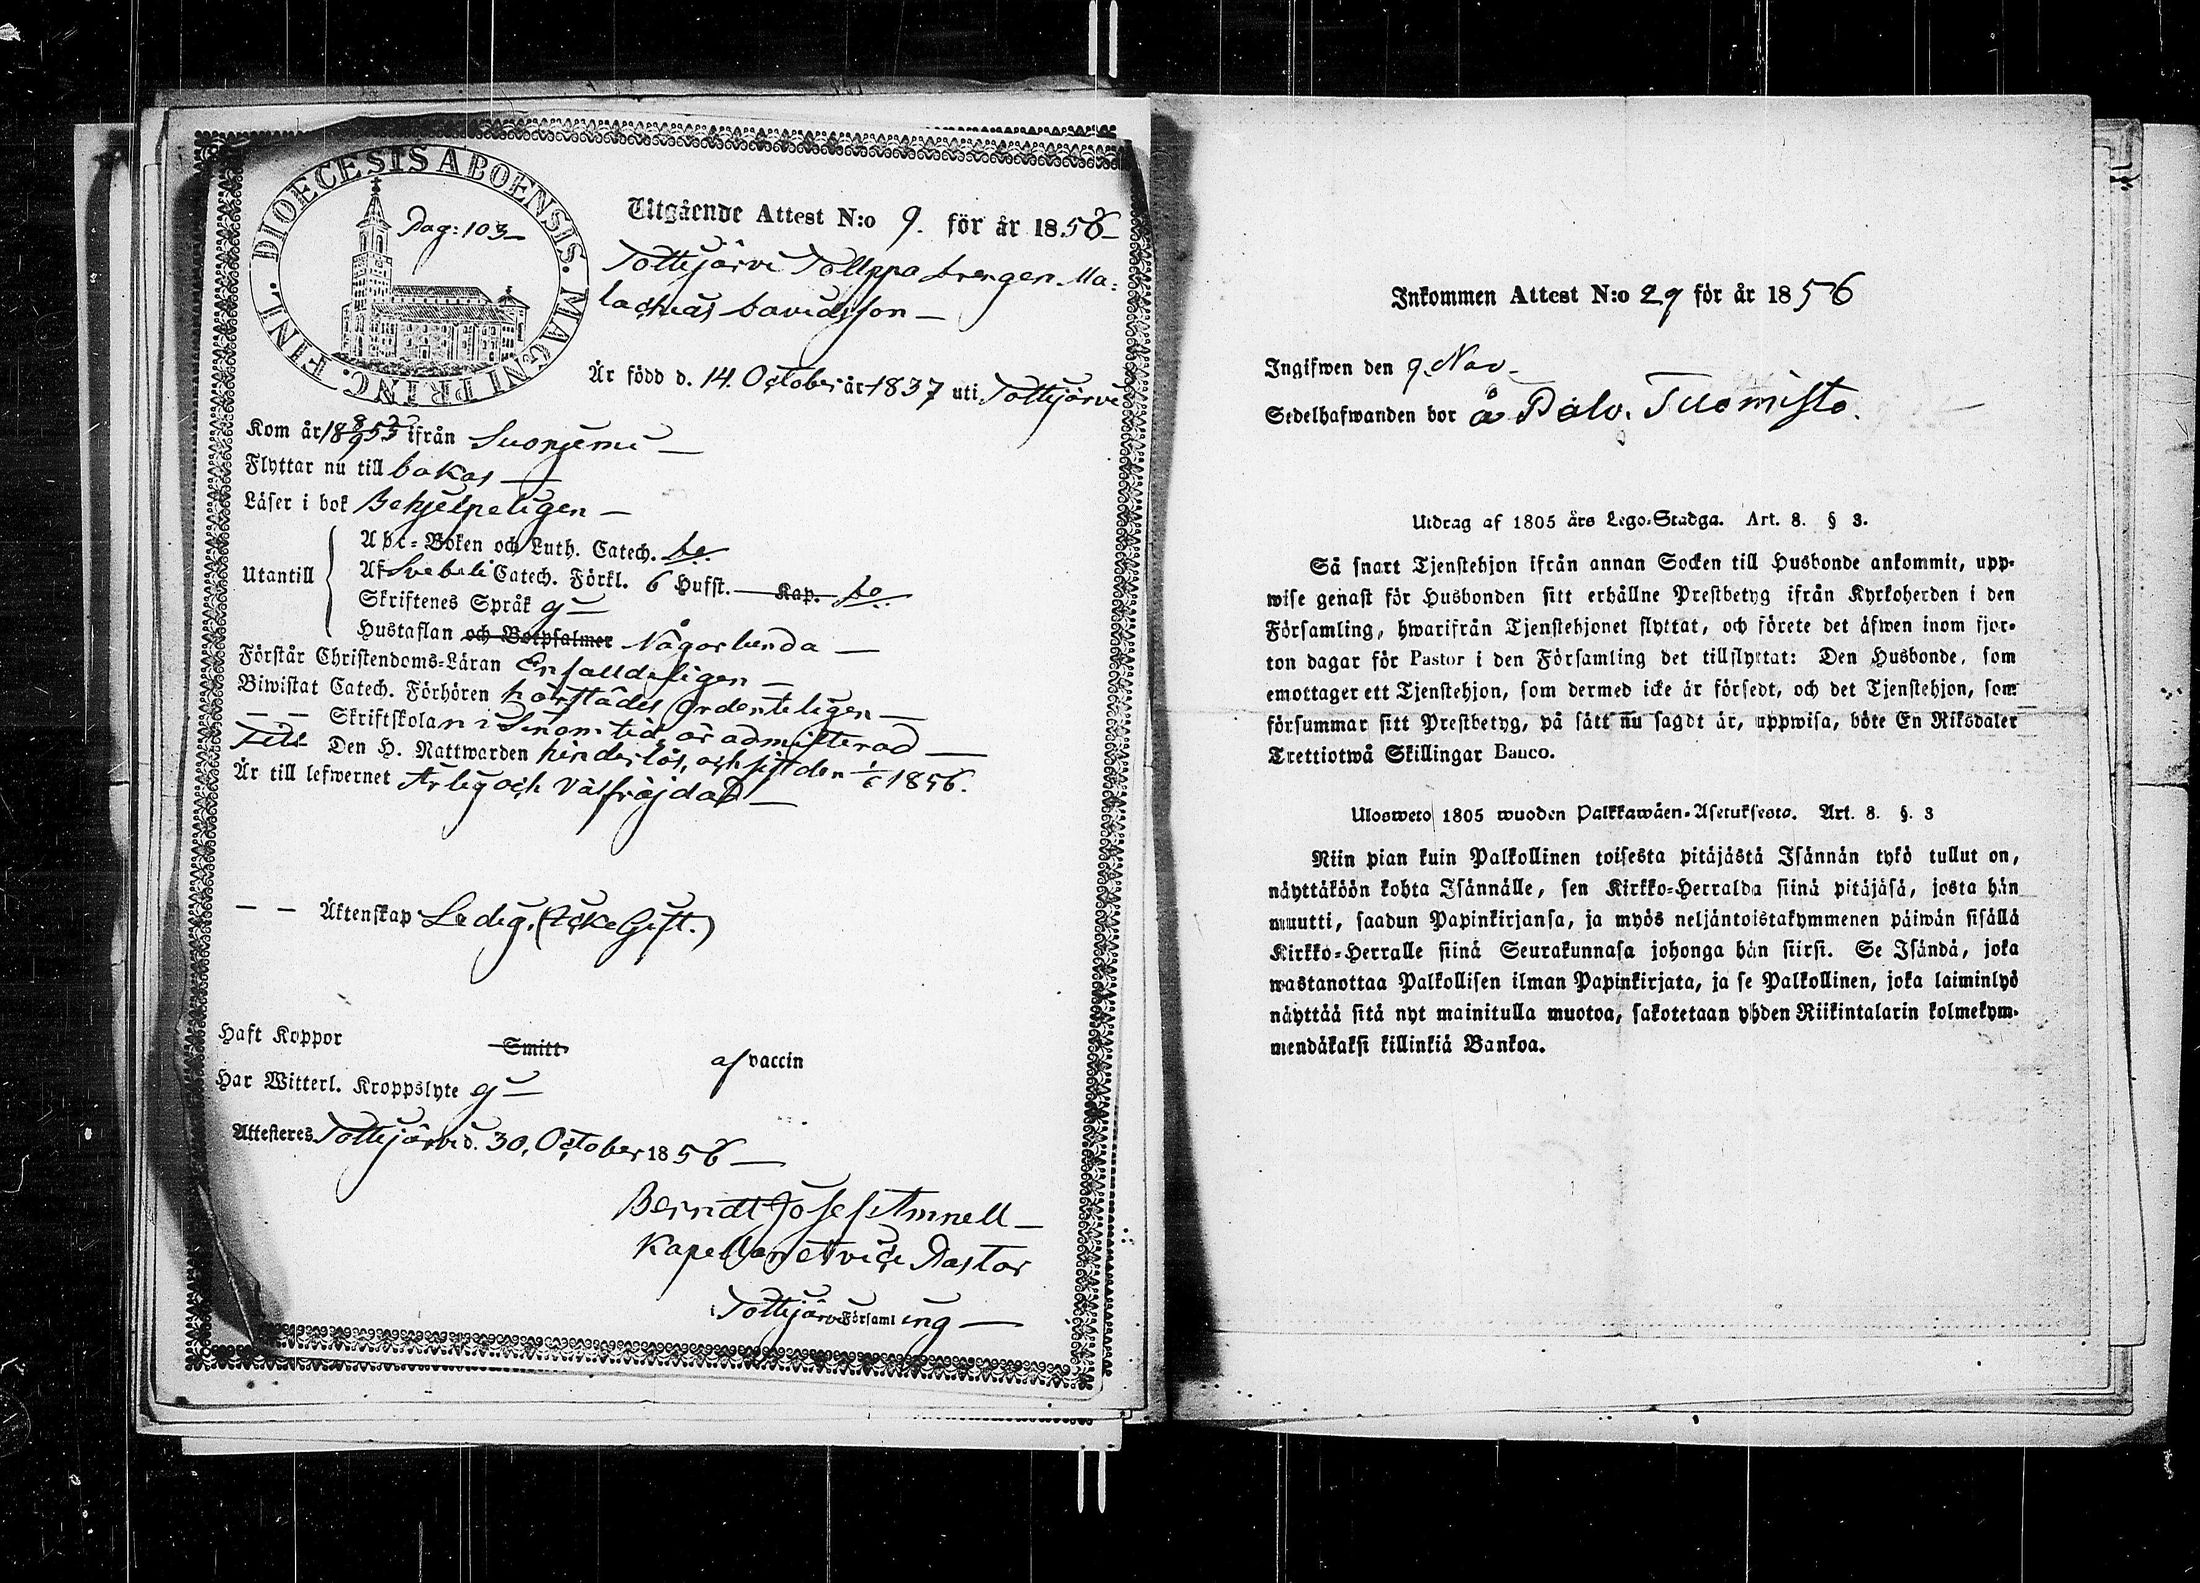 DIOECESIS ABOENSIS. MAGNI PRINC. FINL.
Pag: 103
Utgående Attest N:o 9. för år 1856
Tottijärvi Tolppa drengen Ma:
lachias Davidsson
Är född d. 14. October år 1837 uti Tottijärvi
Kom år 18 8/9 53 ifrån Suonjemi
Flyttar nu till
Läser i bok Behjelpeligen
Utantill
Abc-Boken och Luth. Catech. do.
Af Svebeli Catech. Förkl. 6 Hufst. Kap. do.
Skriftenes Språk ej
Hustaflan och Botpsalmer Någorlunda
Förstår Christendoms-Läran Enfalldeligen
Biwistat Catech. Förhören härstädes Ordenteligen
— — Skriftskolan i sinom tid, är admitterad
Till Den H. Nattwarden hinderlös, och sist den 1/6 1856.
Är till lefwernet Ärlig och Välfräjdad
— — Äktenskap Ledig. (Icke Gift.)
Haft Koppor Smitt af vaccin
Har Witterl. Kroppslyte ej
Attesteres Tottijärvi d. 30. October 1856
Berndt Josef Amnell
Kapellan et vice Pastor
i Tottijärvi Församling
Inkommen Attest N:o 29 för år 1856
Ingifwen den 9. Nov.
Sedelhafwanden bor å Palo. Tuomisto.
Utdrag af 1805 års Lego-Stadga. Art. 8. § 3.
Så snart Tjenstehjon ifrån annan Socken till Husbonde ankommit, upp-
wise genast för Husbonden sitt erhållne Prestbetyg ifrån Kyrkoherden i den
Församling, hwarifrån Tjenstehjonet flyttat, och förete det äfwen inom fjor-
ton dagar för Pastor i den Församling det tillflyttat: Den Husbonde, som
emottager ett Tjenstehjon, som dermed icke är försedt, och det Tjenstehjon, som
försummar sitt Prestbetyg, på sätt nu sagdt är, uppwisa, böte En Riksdaler
Trettiotwå Skillingar Banco.
Ulosweto 1805 wuoden Palkkawäen-Asetuksesta. Art. 8. §. 3
Niin pian kuin Palkollinen toisesta pitäjästä Isännän tykö tullut on,
näyttäköön kohta Isännälle, sen Kirkko-Herralda siinä pitäjäsä, josta hän
muutti, saadun Papinkirjansa, ja myös neljäntoistakymmenen päiwän sisällä
Kirkko-Herralle siinä Seurakunnasa johonga hän siirsi. Se Isändä, joka
wastanottaa Palkollisen ilman Papinkirjata, ja se Palkollinen, joka laiminlyö
näyttää sitä nyt mainitulla muotoa, sakotetaan yhden Riikintalarin kolmekym-
mendäkaksi killinkiä Bankoa.